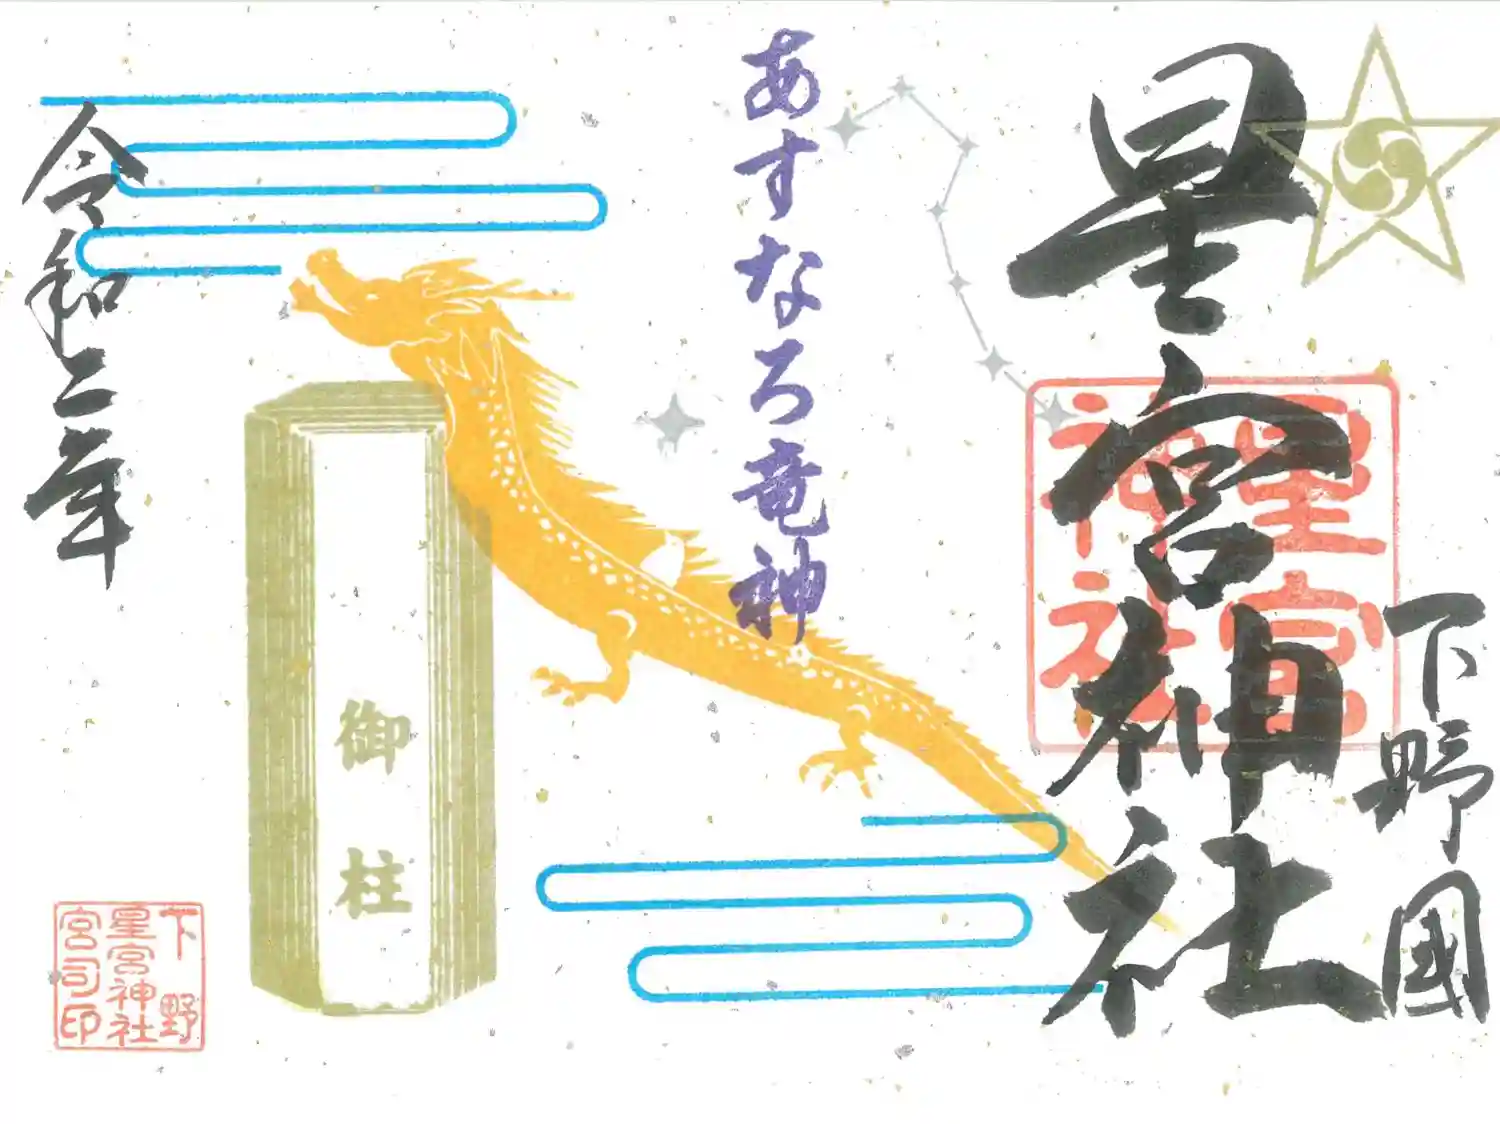 下野國
星宮神社
星宮
神社
あすなろ竜神
御柱
令和二年
下野
星宮神社
宮司印